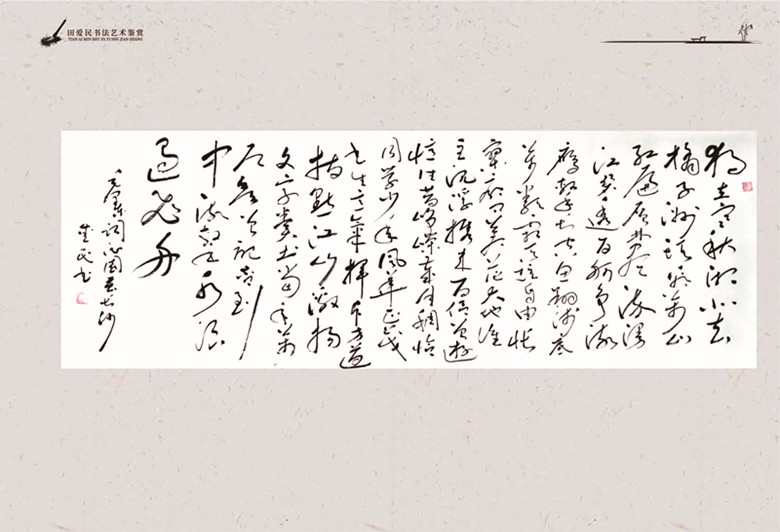 田爱民书法艺术鉴赏
TIAN AI MIN SHU FA YI SHU JIAN SHANG
独立寒秋湘江北去
橘子洲头看万山
红遍层林尽染漫
江碧透百舸争流
鹰击长空鱼翔浅底
万类霜天竞自由怅
寥廓问苍茫大地谁
主沉浮携来百侣曾游
忆往昔峥嵘岁月稠恰
同学少年风华正茂
书生意气挥斥方遒
指点江山激扬
文字粪土当年万
户侯曾记否到
中流击水浪
遏飞舟
毛泽东词沁园春长沙
爱民书